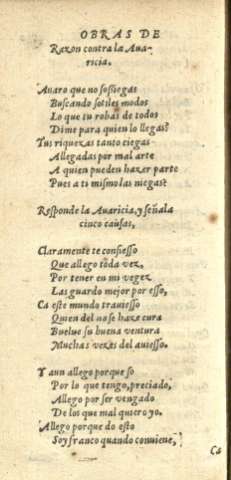 OBRAS DE
Razon contra la Aua-
ricia.
Auaro que no soſsiegas
Buscando sotiles modos
Lo que tu robas de todos
Dime para quien lo llegas?
Tus riquezas tanto ciegas
Allegadas por mal arte
A quien pueden hazer parte
Pues a ti mismo las niegas?
Responde la Auaricia, y señala
cinco causas,
Claramente te confiesso
Que allego toda vez,
Por tener en mi vegez
Las guardo mejor por esso,
Ca este mundo trauiesso
Quien del no se haze cura
Buelue su buena ventura
Muchas vezes del auiesso.
Y aun allego porque so
Por lo que tengo, preciado,
Allego por ser vengado
De los que mal quiero yo.
Allego porque do esto
Soy franco quando conuiene,
Ca